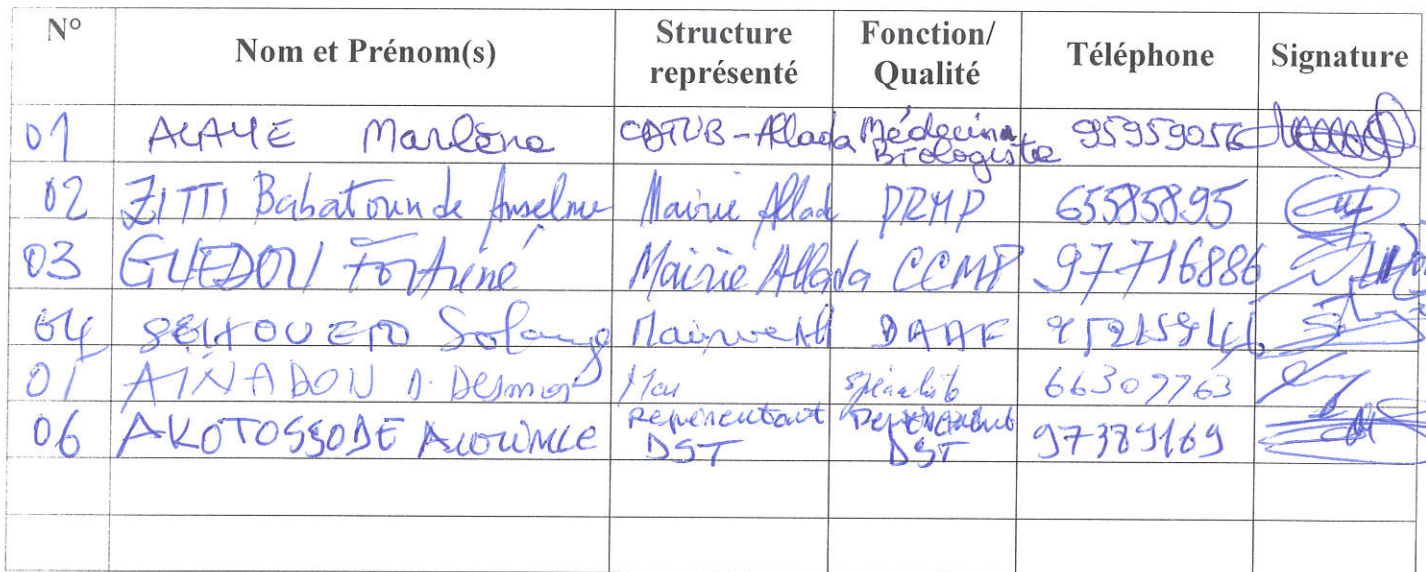 N° Nom et Prénom(s) Structure représenté Fonction/ Qualité Téléphone Signature
01 ALAYE Marlène CATUB-Allada Médecin Biologiste 95959056
02 ZITTI Babatounde Anselme Mairie Allada PRMP 65585895
03 GUEDOU Fortuné Mairie Allada CCMP 97716886
04 Solange Mairie DAAF
AÏNADOU D. 66307763
06 AKOTOSSODE représentant DST représentant DST 97389169